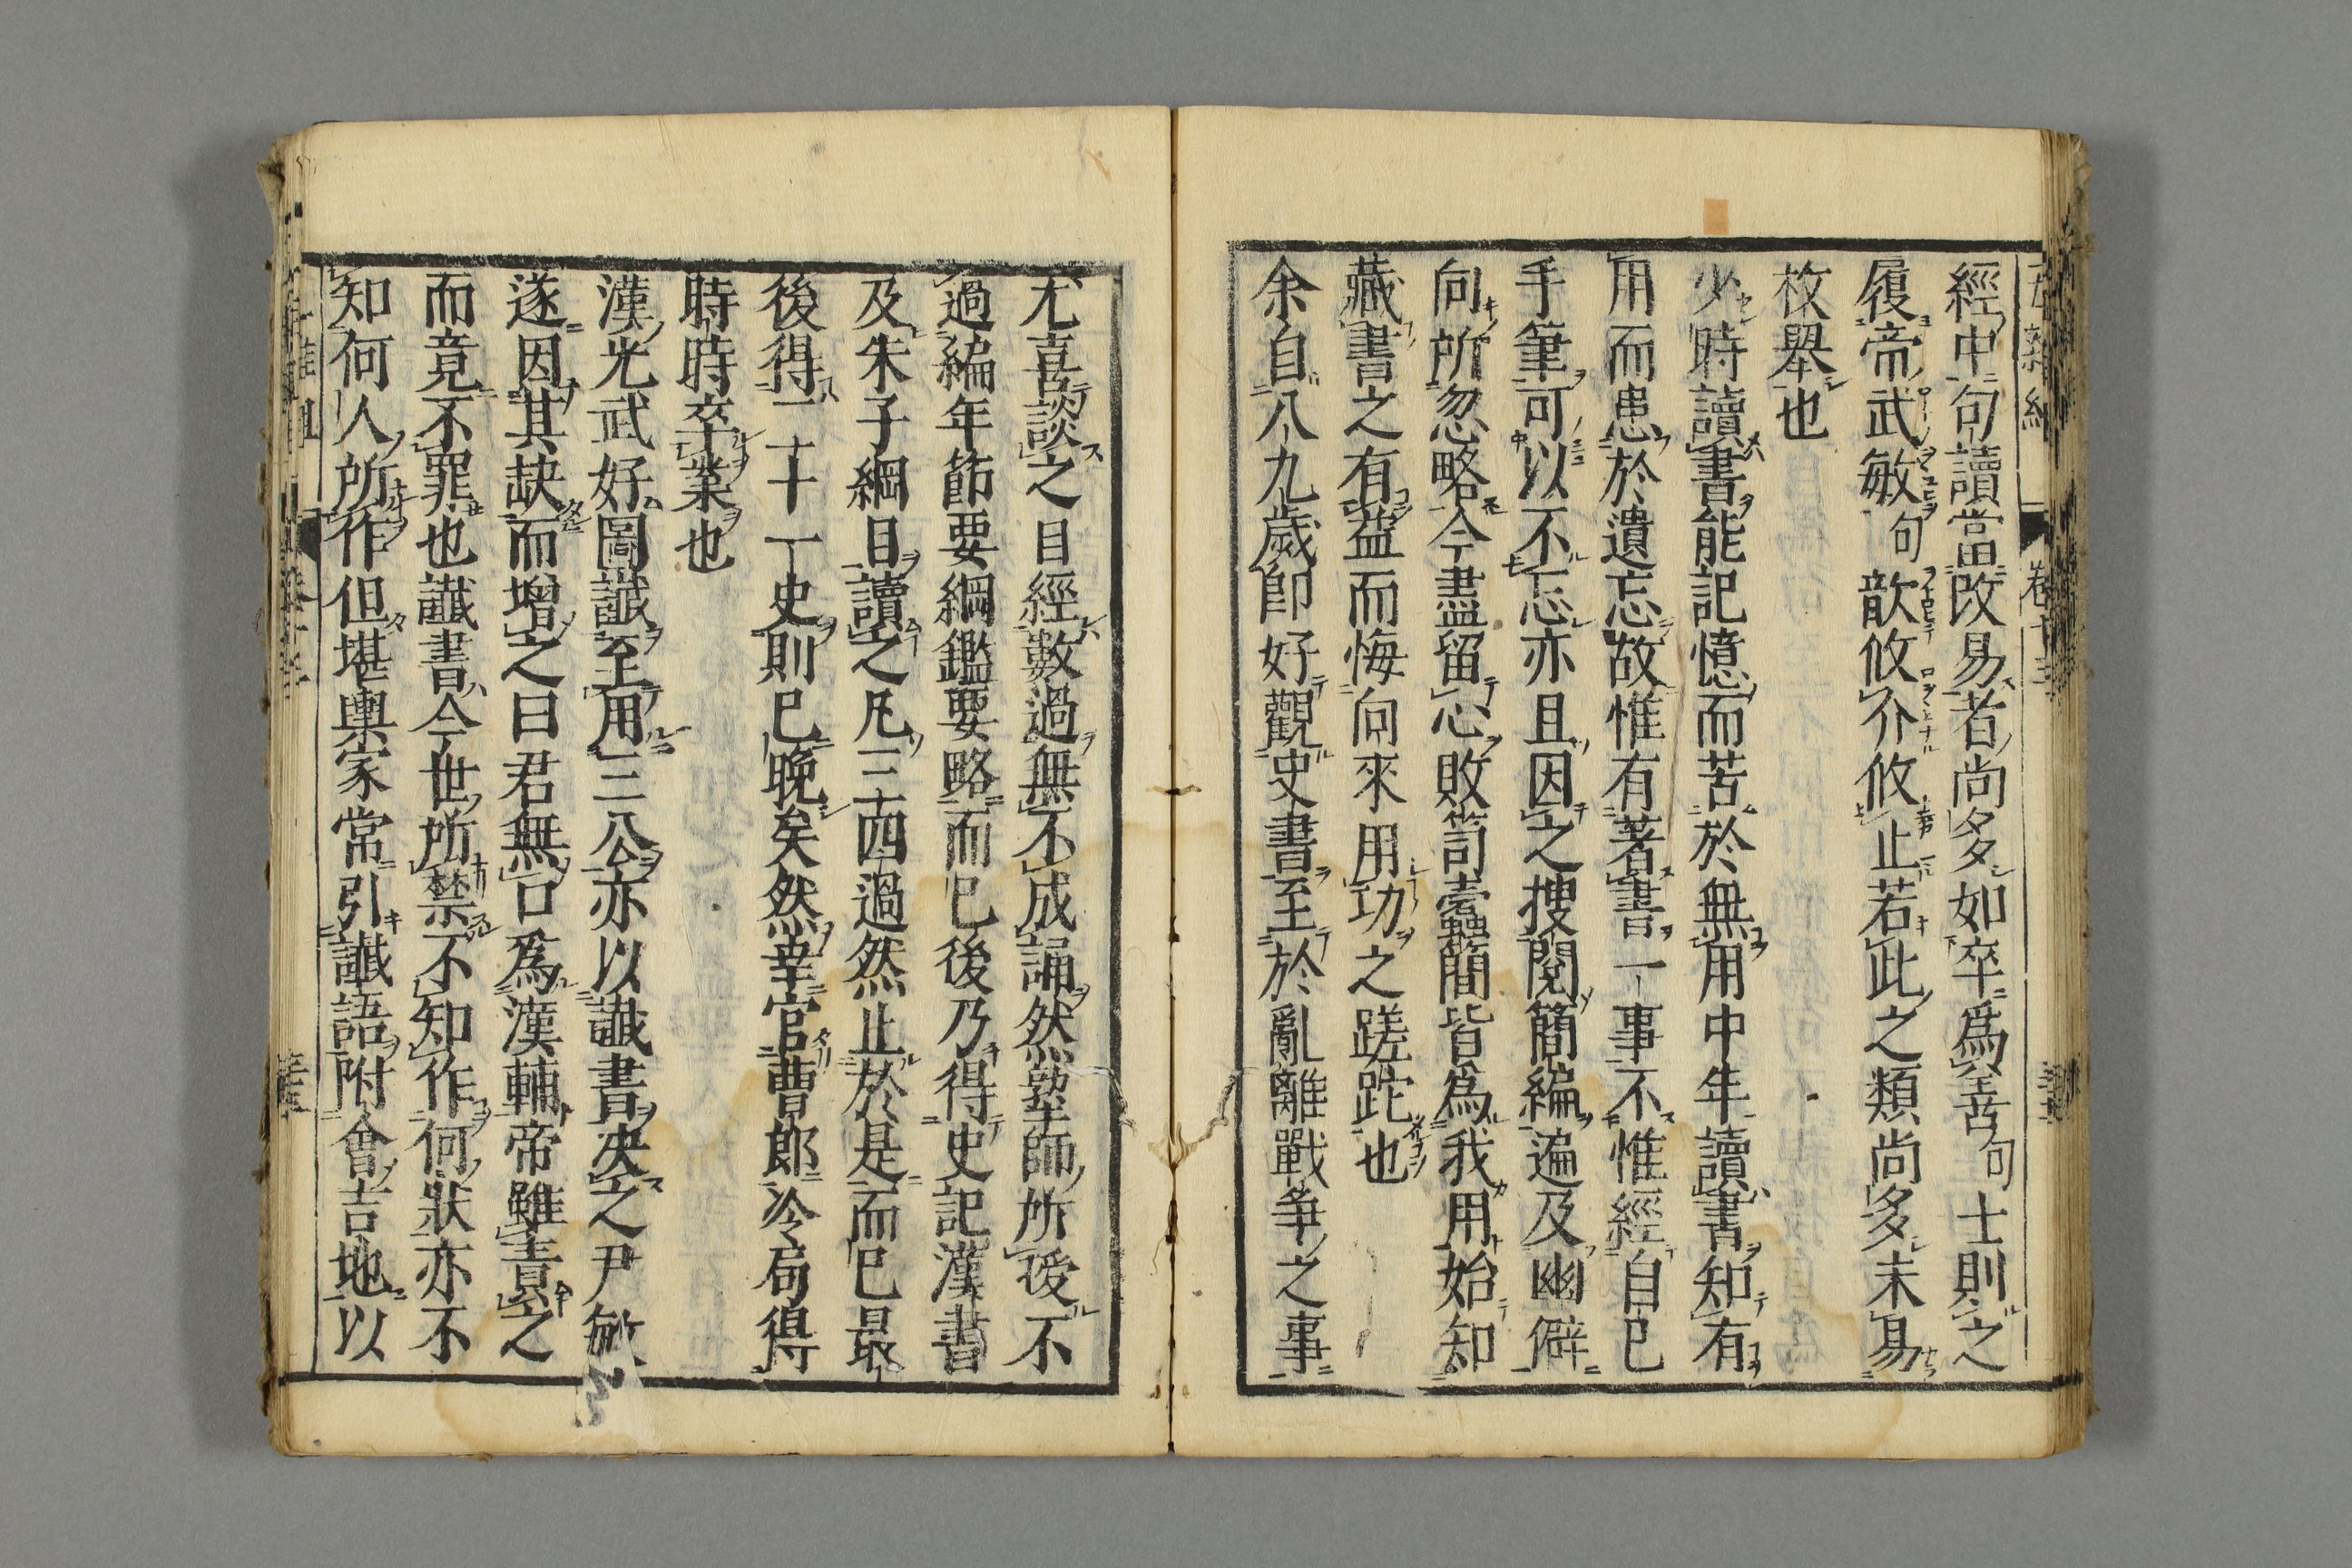 經中句讀當改易者尚多如卒爲善句士則之
履帝武敏句歆攸介攸止若此之類尚多未易
枚舉也
少時讀書能記憶而苦於無用中年讀書知有
用而患於遺忘故惟有著書一事不惟經自己
手筆可以不忘亦且因之搜閱簡編遍及幽僻
向所忽略今盡留心敗笥蠹簡皆爲我用始知
藏書之有益而悔向來用功之蹉跎也
余自八九歲卽好觀史書至於亂離戰爭之事
尤喜談之目經數過無不成誦然塾師所授不
過編年節要綱鑑要略而已後乃得史記漢書
及朱子綱目讀之凡三四過然止於是而已最
後得二十一史則已晚矣然幸官曹郎冷局得
時時卒業也
漢光武好圖讖至用三公亦以讖書决之尹敏
遂因其缺而增之曰君無口爲漢輔帝雖責之
而竟不罪也讖書今世所禁不知作何狀亦不
知何人所作但堪輿家常引讖語附會吉地以